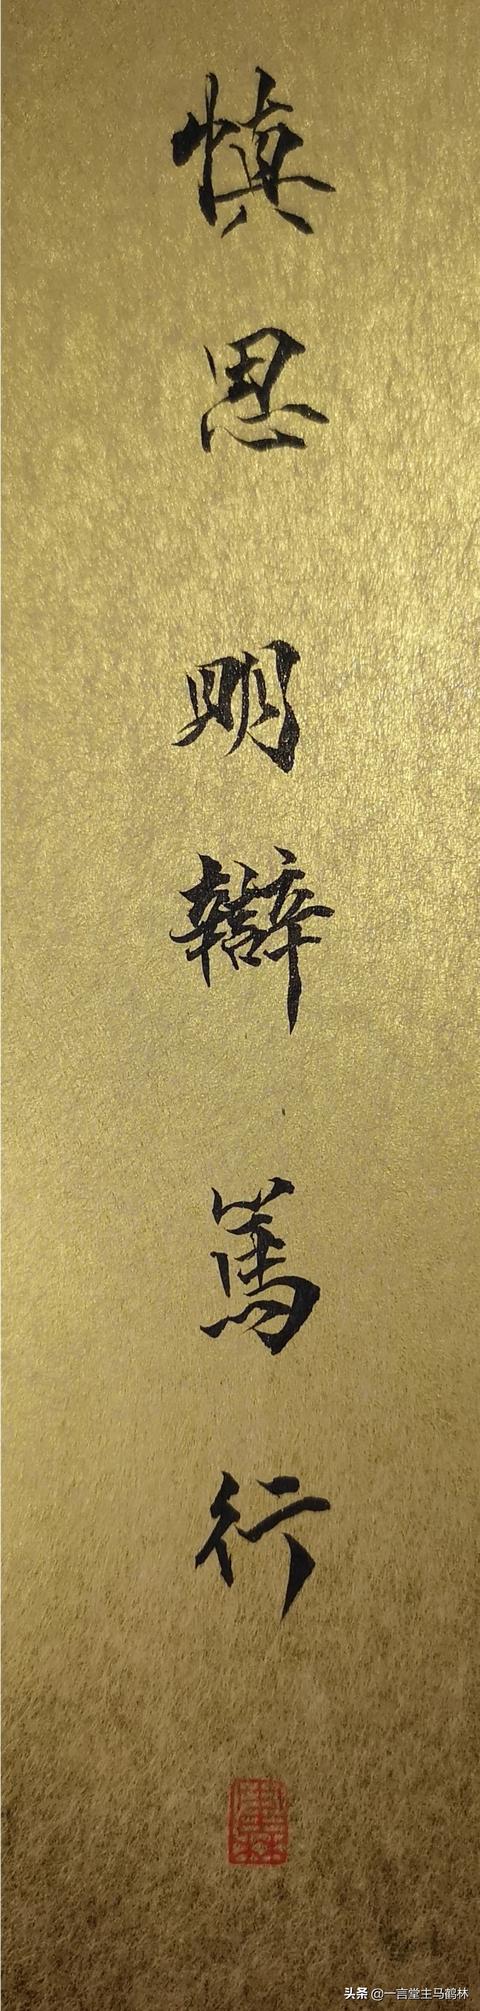 慎思明辯篤行
头条 @一言堂主马鹤林